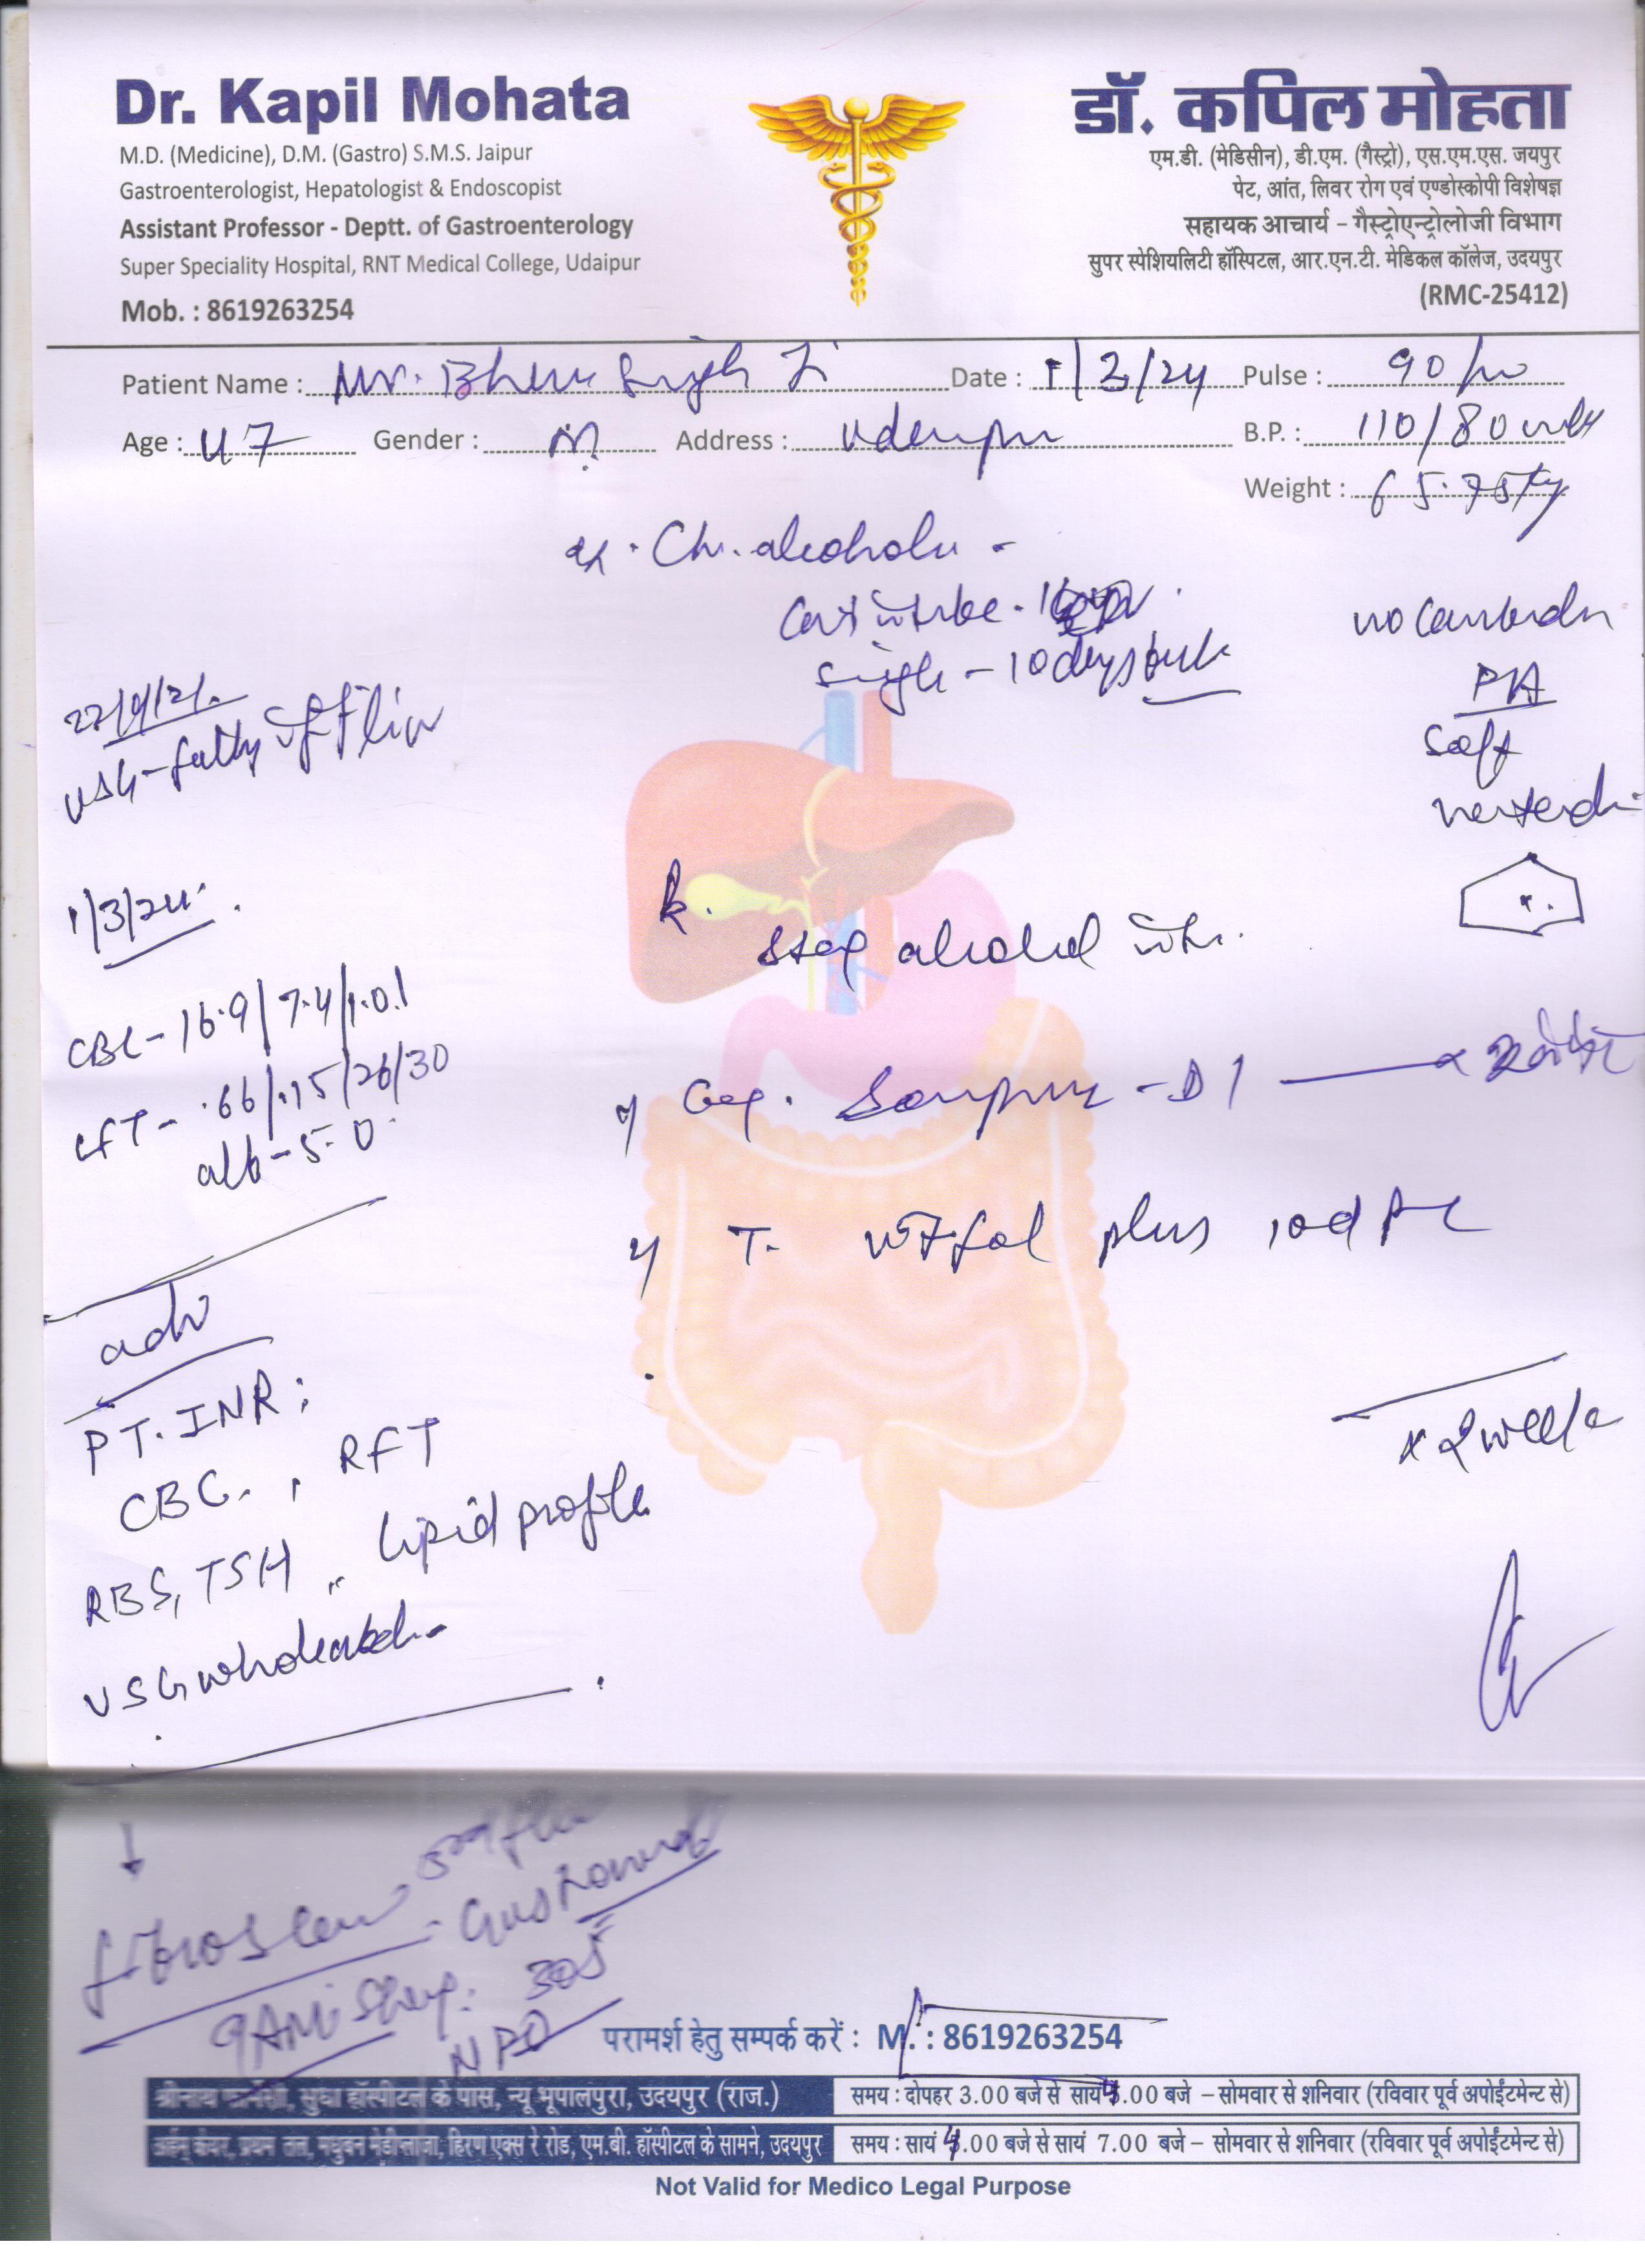 Dr. Kapil Mohata
M.D. (Medicine), D.M. (Gastro) S.M.S. Jaipur
Gastroenterologist, Hepatologist & Endoscopist
Assistant Professor - Deptt. of Gastroenterology
Super Speciality Hospital, RNT Medical College, Udaipur
Mob. : 8619263254
डॉ. कपिल मोहता
एम.डी. (मेडिसीन), डी.एम. (गैस्ट्रो), एस.एम.एस. जयपुर
पेट, आंत, लिवर रोग एवं एण्डोस्कोपी विशेषज्ञ
सहायक आचार्य - गैस्ट्रोएन्ट्रोलोजी विभाग
सुपर स्पेशियलिटी हॉस्पिटल, आर.एन.टी. मेडिकल कॉलेज, उदयपुर
(RMC-25412)
Patient Name : Mr. Singh Ji Date : 1/3/24 Pulse : 90/
Age : 47 Gender : M Address : B.P. : 110/80
Weight : 65.75 kg
Ch. alcoholic -
single - 10 days back
P/A
Soft
USG - fatty liver
1/3/24
stop alcohol
CBC - 16.9/7.4/1.01
LFT - .66/.15/26/30
alb - 5.0
Cap. -D 1
T. plus 1 od
adv
PT.INR;
CBC. , RFT
RBS, TSH , Lipid profile
USG whole abd.
x 2 week
fibroscan
9 AM
NPO
परामर्श हेतु सम्पर्क करें : M. : 8619263254
श्रीनाथ फार्मेसी, सुधा हॉस्पीटल के पास, न्यू भूपालपुरा, उदयपुर (राज.) समय : दोपहर 3.00 बजे से सायं .00 बजे - सोमवार से शनिवार (रविवार पूर्व अपोईंटमेन्ट से)
प्रथम तल, मधुबन मेडीप्लाजा, हिरण एक्स रे रोड, एम.बी. हॉस्पीटल के सामने, उदयपुर समय : सायं .00 बजे से सायं 7.00 बजे - सोमवार से शनिवार (रविवार पूर्व अपोईंटमेन्ट से)
Not Valid for Medico Legal Purpose